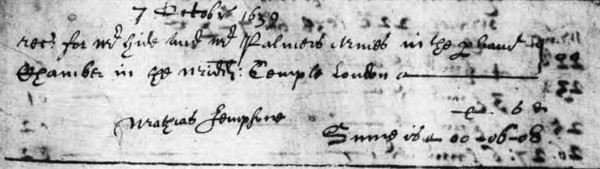 7 October 1639
rec: for Mr Hide and Mr Palmers Armes in the
Chamber in the Midd: Temple London
6 8
Mathias Jempsone
Sume is 00-06-08